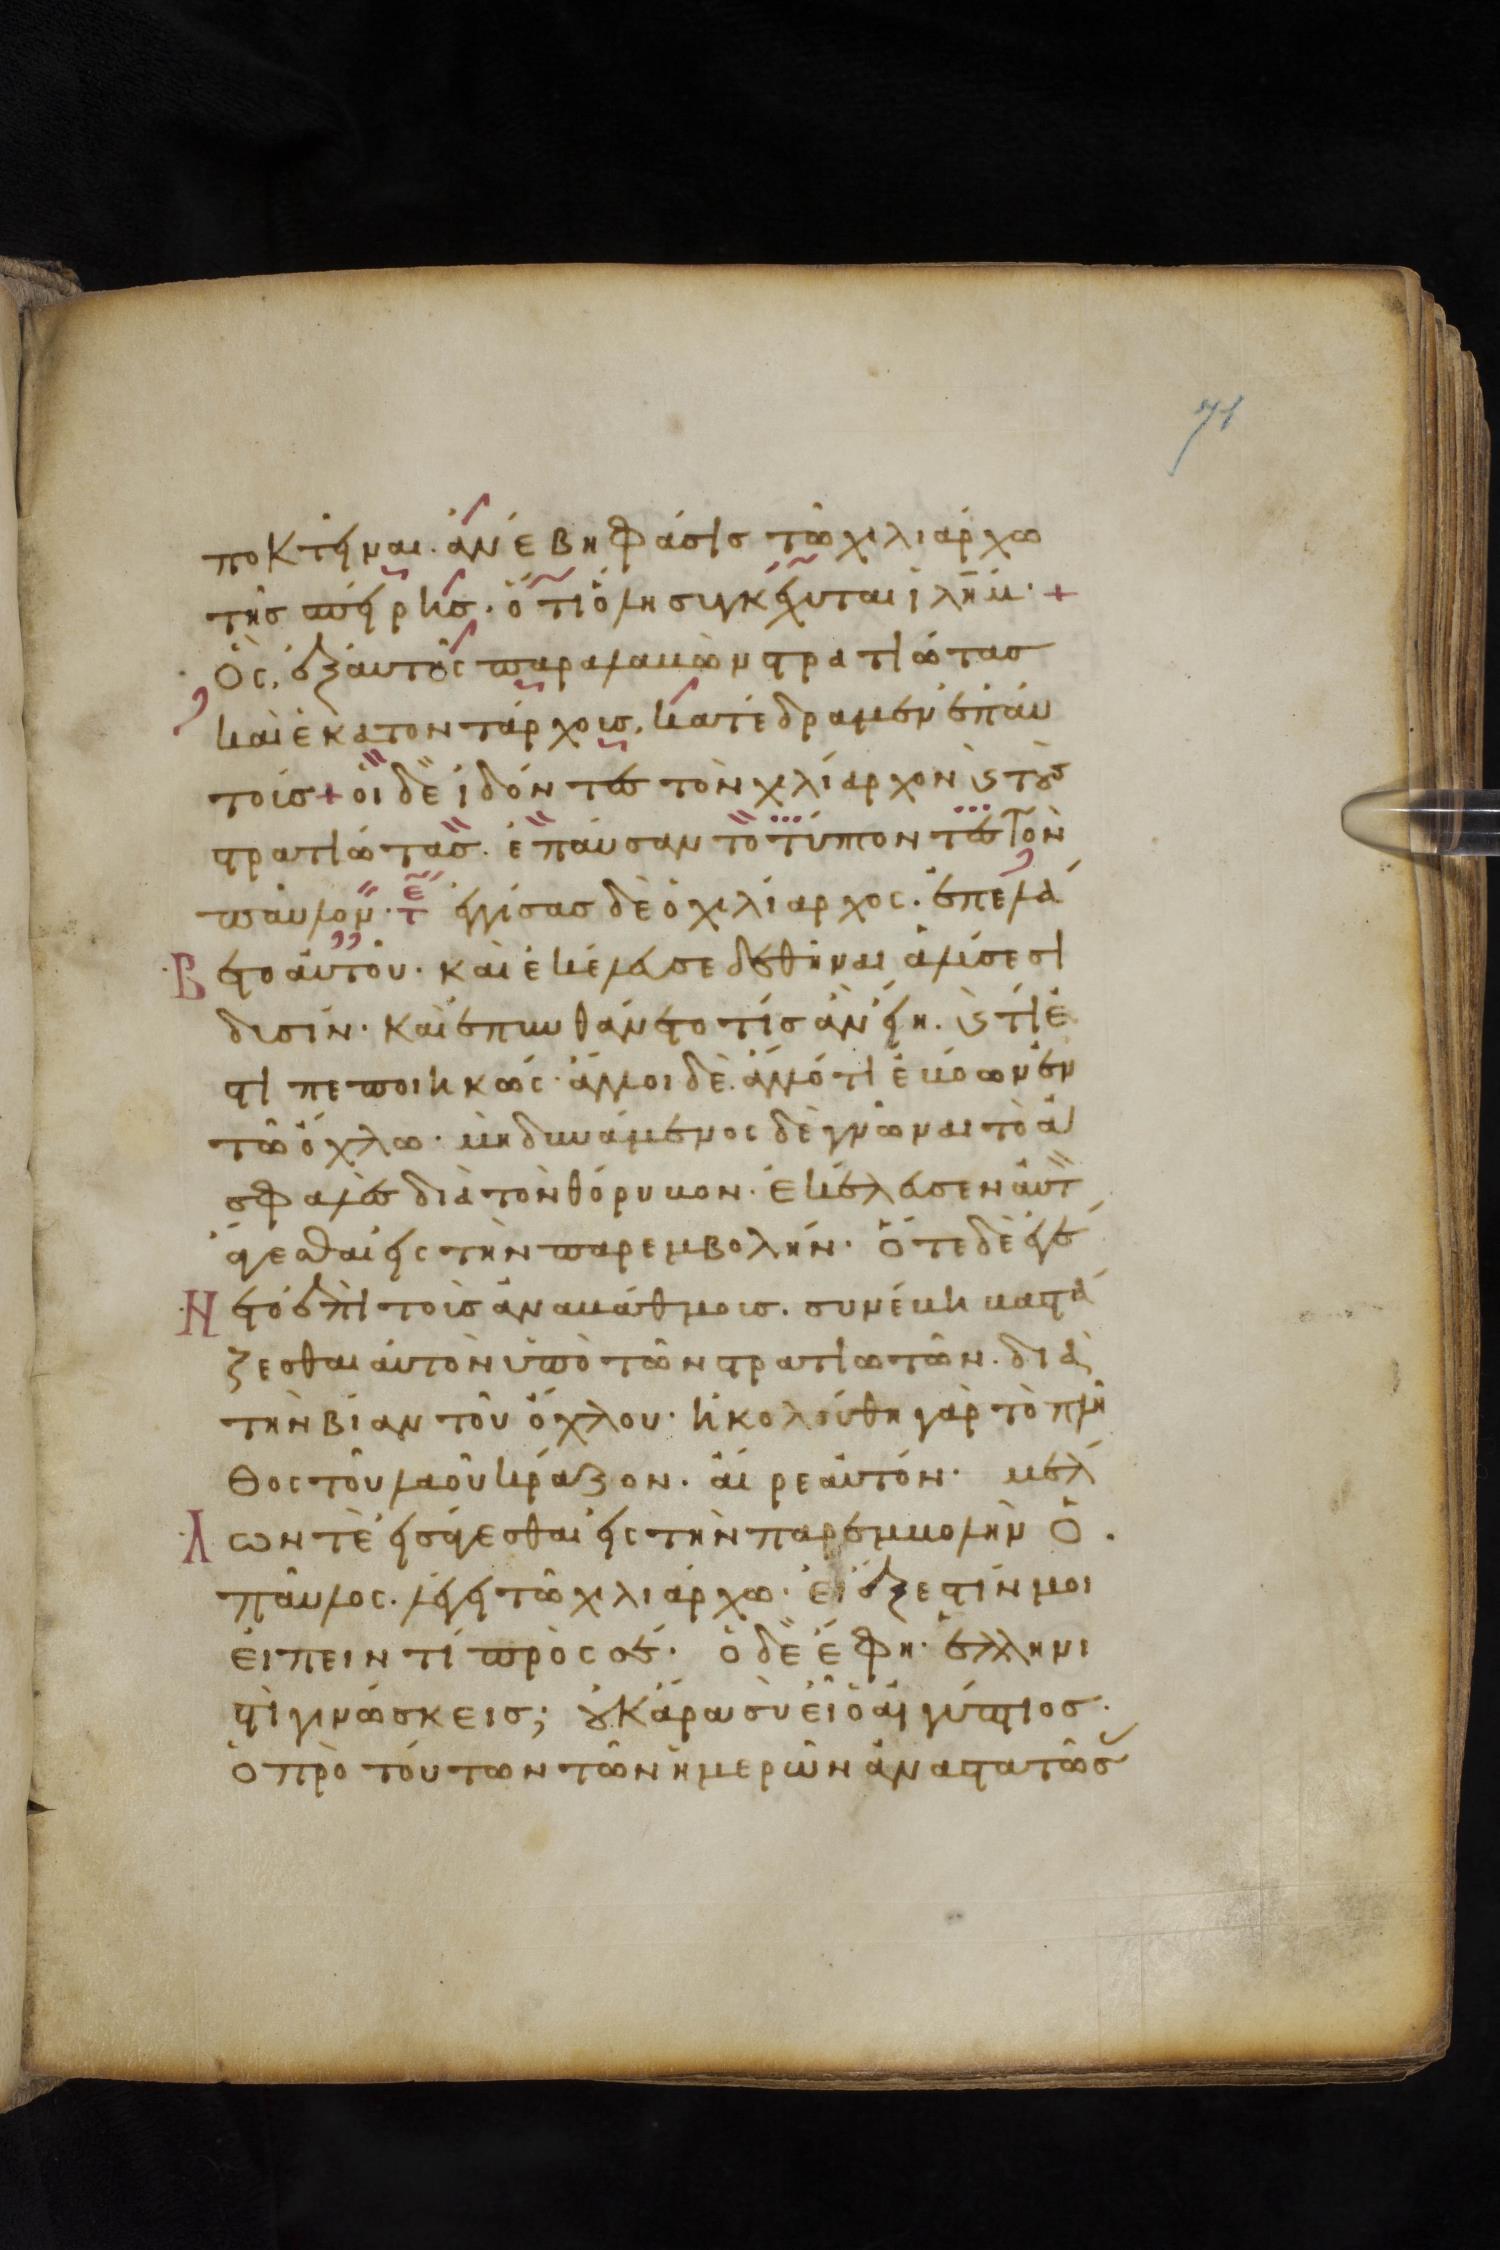 71
ποκτεῖναι· ἀνέβη φάσις τῶ χιλιάρχω
τῆς σπείρης· ὅτι ὅλη συγκέχυται ἱλήμ· +
Ὃς, ἐξαυτῆς παραλαβὼν στρατιώτας
καὶ ἑκατοντάρχους, κατέδραμεν ἐπ' αὐ
τούς + οἱ δὲ ἰδόντες τὸν χιλίαρχον καὶ τοὺς
στρατιώτας· ἐπαύσαντο τύπτοντες τὸν
παῦλον· τε ἐγγίσας δὲ ὁ χιλίαρχος· ἐπελά
Β ετο αὐτοῦ· καὶ ἐκέλευσε δεθῆναι ἁλύσεσι
δυσίν· καὶ ἐπυνθάνετο τίς ἂν εἴη· καὶ τί ἐ
στι πεποιηκώς· ἄλλοι δὲ ἄλλό τι ἐβόων ἐν
τῶ ὄχλω· μὴ δυνάμενος δὲ γνῶναι τὸ ἀ
σφαλὲς διὰ τὸν θόρυβον· ἐκέλευσεν αὐτ
ἄγεσθαι εἰς τὴν παρεμβολήν· Ὅτε δὲ ἐγέ
Ν ετο ἐπὶ τοὺς ἀναβαθμούς· συνέβη βαστά
ζεσθαι αὐτὸν ὑπὸ τῶν στρατιωτῶν· διὰ
τὴν βίαν τοῦ ὄχλου· ἠκολούθη γὰρ τὸ πλῆ
θος τοῦ λαοῦ κράζον· αἶρε αὐτόν· μέλ
Λ ων τὲ εἰσάγεσθαι εἰς τὴν παρεμβολὴν ὁ·
παῦλος· λέγει τῶ χιλιάρχω· εἰ ἔξεστίν μοι
εἰπεῖν τί πρὸς σέ· ὁ δὲ ἔφη· ἑλληνι
στὶ γινώσκεις; οὐκ ἄρα σὺ εἶ ὁ αἰγύπτιος·
ὁ πρὸ τούτων τῶν ἡμερῶν ἀναστατώσ